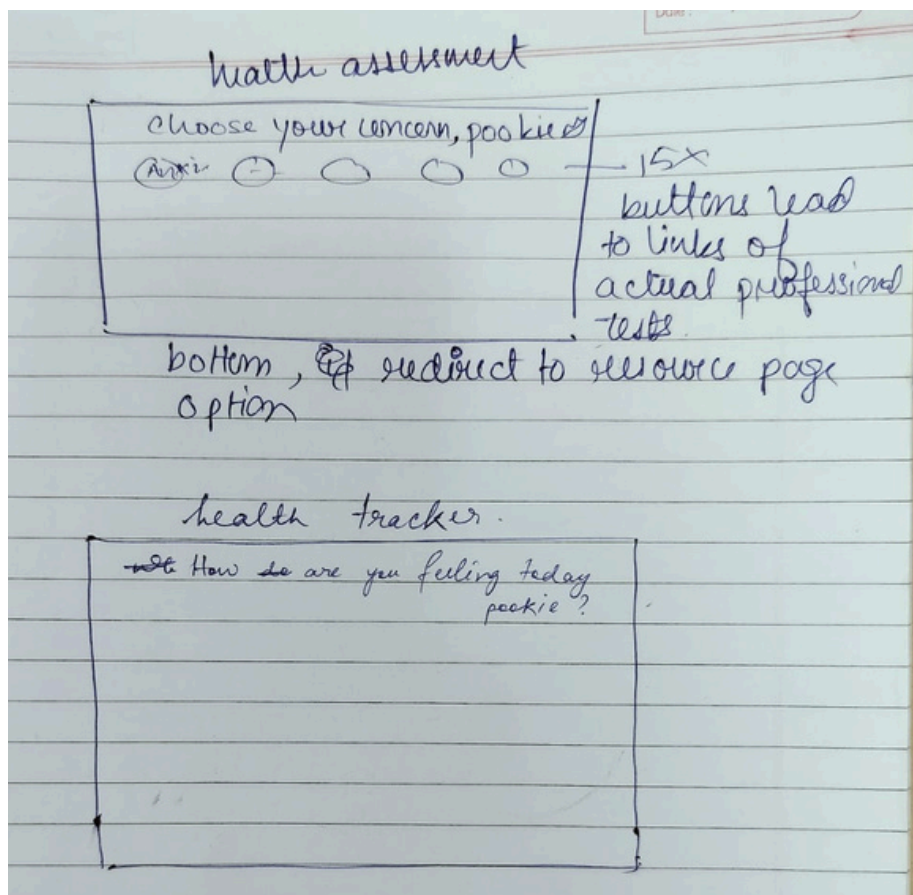 Date:
health assessment
choose your concern, pookie
Anxi
15x
buttons lead
to links of
actual professional
tests.
bottom, redirect to resource page
option
health tracker.
How do are you feeling today
pookie?